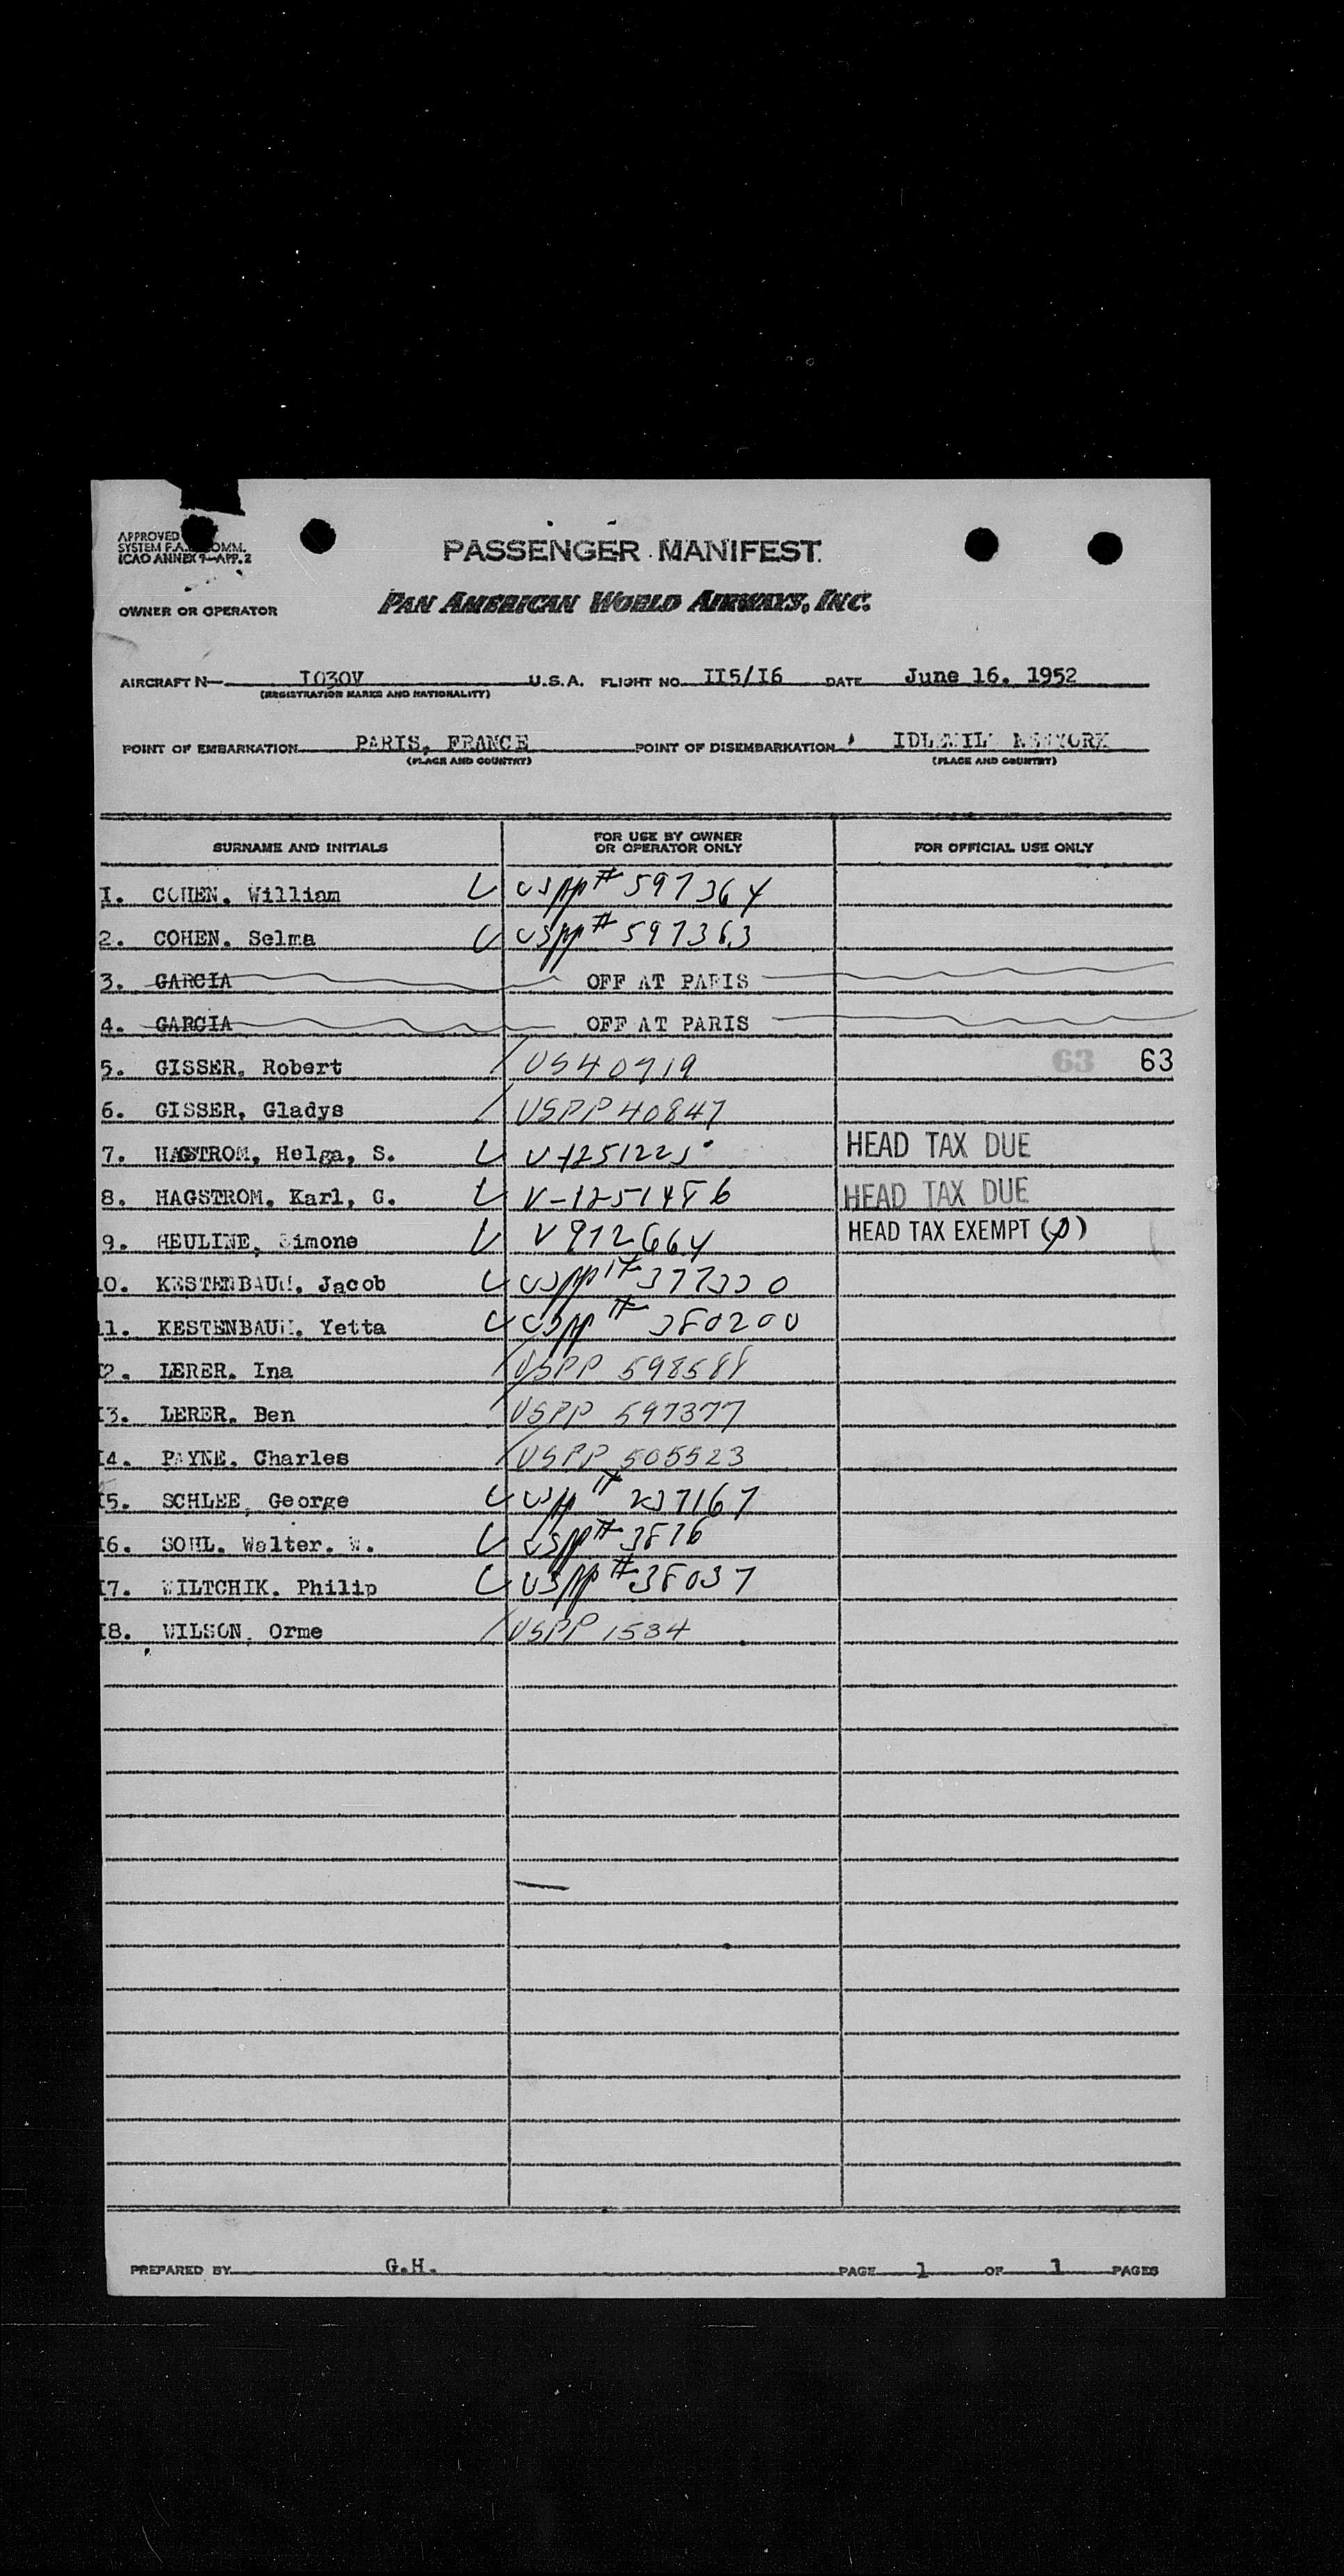 APPROVED
SYSTEM P.A. COMM.
ICAO ANNEX 9-APP. 2
PASSENGER MANIFEST
OWNER OR OPERATOR PAN AMERICAN WORLD AIRWAYS, INC.
AIRCRAFT N— I030V U.S.A. FLIGHT NO. II5/I6 DATE June 16. 1952
(REGISTRATION MARKS AND NATIONALITY)
POINT OF EMBARKATION PARIS, FRANCE POINT OF DISEMBARKATION IDLEWILD NEWYORK
(PLACE AND COUNTRY) (PLACE AND COUNTRY)
SURNAME AND INITIALS FOR USE BY OWNER OR OPERATOR ONLY FOR OFFICIAL USE ONLY
I. COHEN. William uspp# 597364
2. COHEN. Selma uspp# 597363
3. GARCIA OFF AT PARIS
4. GARCIA OFF AT PARIS
5. GISSER, Robert US40919 63 63
6. GISSER, Gladys USPP 40847
7. HAGSTROM, Helga, S. V-1251225 HEAD TAX DUE
8. HAGSTROM. Karl, G. V-1251486 HEAD TAX DUE
9. HEULINE, Simone V912664 HEAD TAX EXEMPT
10. KESTENBAUM. Jacob uspp# 377330
11. KESTENBAUM. Yetta uspp# 380200
I2. LERER. Ina USPP 598588
I3. LERER. Ben USPP 597377
I4. PAYNE. Charles USPP 505523
I5. SCHLEE, George uspp# 237167
I6. SOHL. Walter. W. uspp# 3876
I7. WILTCHIK. Philip uspp# 38037
I8. WILSON, Orme USPP 1534
PREPARED BY G.H. PAGE 1 OF 1 PAGES